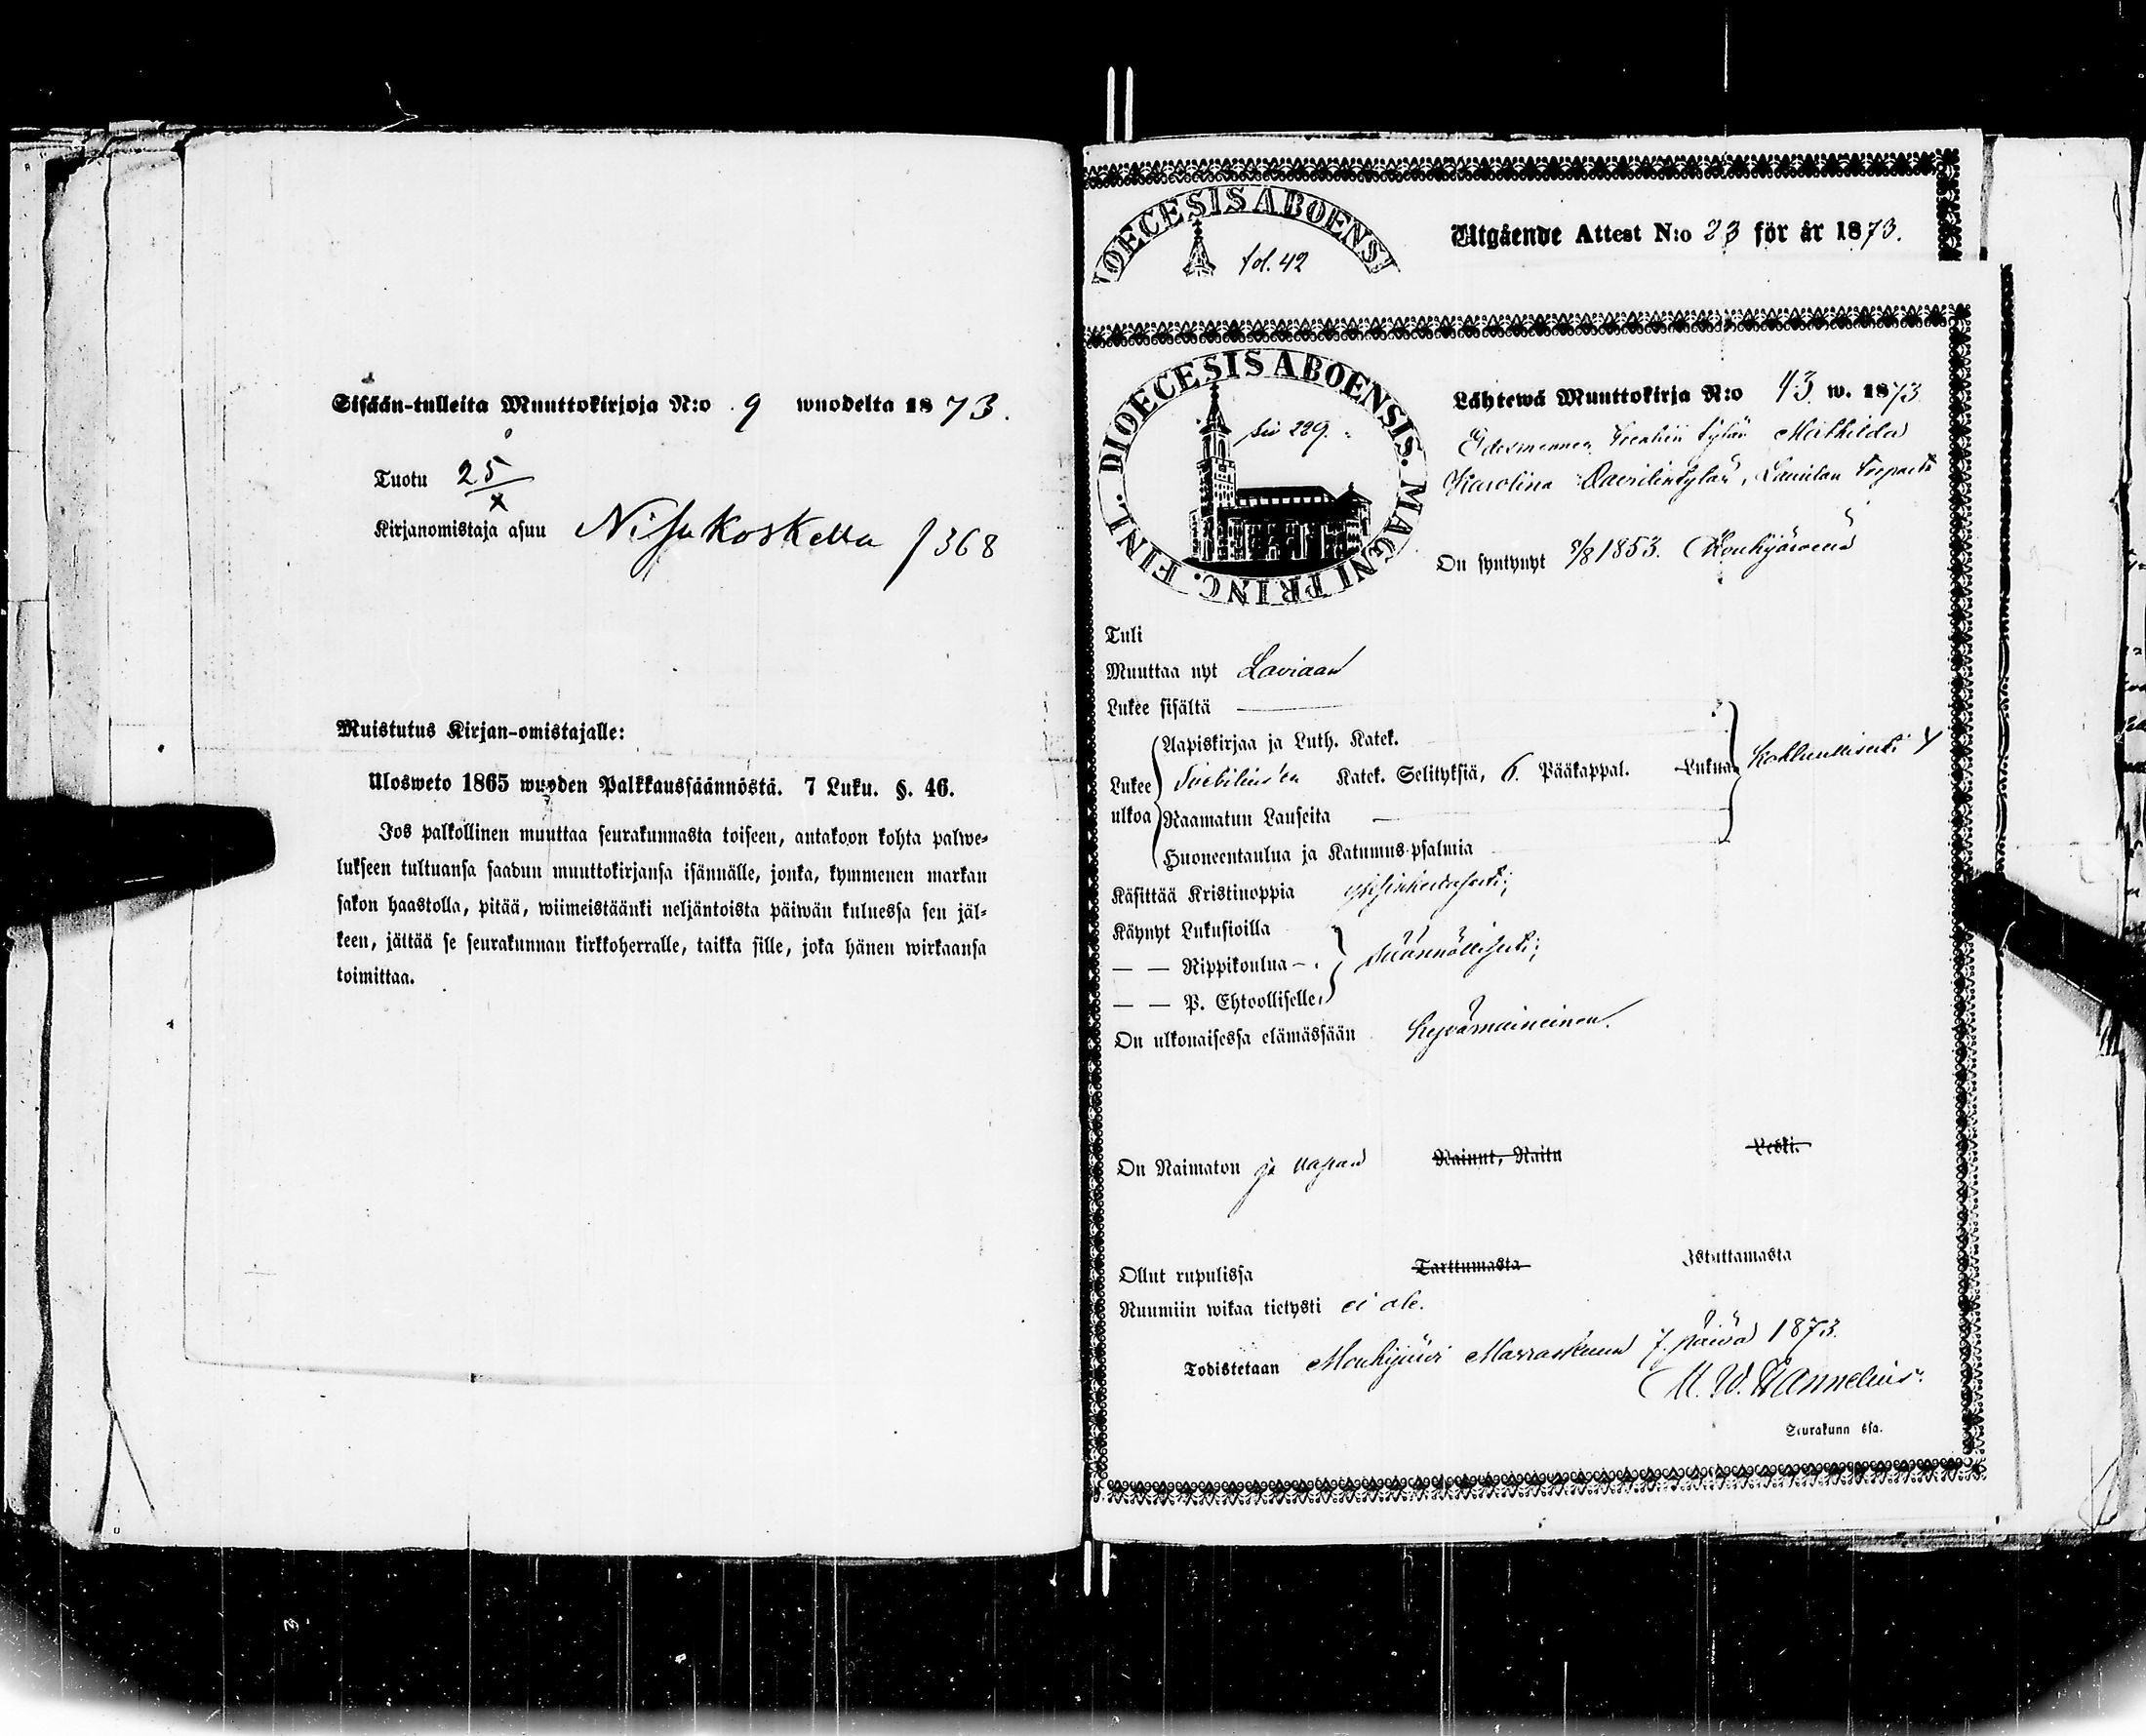 Sisään-tulleita Muuttokirjoja N:o 9 wuodelta 1873.
Tuotu 25/X
Kirjanomistaja asuu Nisukoskella f 368
Muistutus Kirjan-omistajalle:
Ulosweto 1865 wuoden Palkkaussäännöstä. 7 Luku. §. 46.
Jos palkollinen muuttaa seurakunnasta toiseen, antakoon kohta palwe-
lukseen tultuansa saadun muuttokirjansa isännälle, jonka, kymmenen markan
sakon haastolla, pitää, wiimeistäänki neljäntoista päiwän kuluessa sen jäl-
keen, jättää se seurakunnan kirkkoherralle, taikka sille, joka hänen wirkaansa
toimittaa.
DIOECESIS ABOENSI
fol. 42
Utgående Attest N:o 23 för år 1873.
DIOECESIS ABOENSIS. MAGNI PRINC. FINL.
siv 229.
Lähtewä Muuttokirja N:o 43 w. 1873
Mathilda
Karolina
On syntynyt 8/8 1853. Mouhijärvellä
Tuli
Muuttaa nyt Laviaan
Lukee sisältä
Aapiskirjaa ja Luth. Katek.
Lukee ulkoa Svebilius'en Katek. Selityksiä, 6. Pääkappal. Lukua kohtuullisesti
Raamatun Lauseita
Huoneentaulua ja Katumus-psalmia
Käsittää Kristinoppia yksinkertaisesti;
Käynyt Lukusioilla
— — Rippikoulua säännöllisesti;
— — P. Ehtoollisella
On ulkonaisessa elämässään hyvämaineinen.
On Naimaton ja vapaa Nainut, Naitu Leski.
Ollut rupulissa Tarttumasta Istuttamasta
Ruumiin wikaa tietysti ei ole.
Todistetaan Mouhijärvi Marraskuun 7. päivä 1873.
M. W. Wannelius.
Seurakunn ssa.